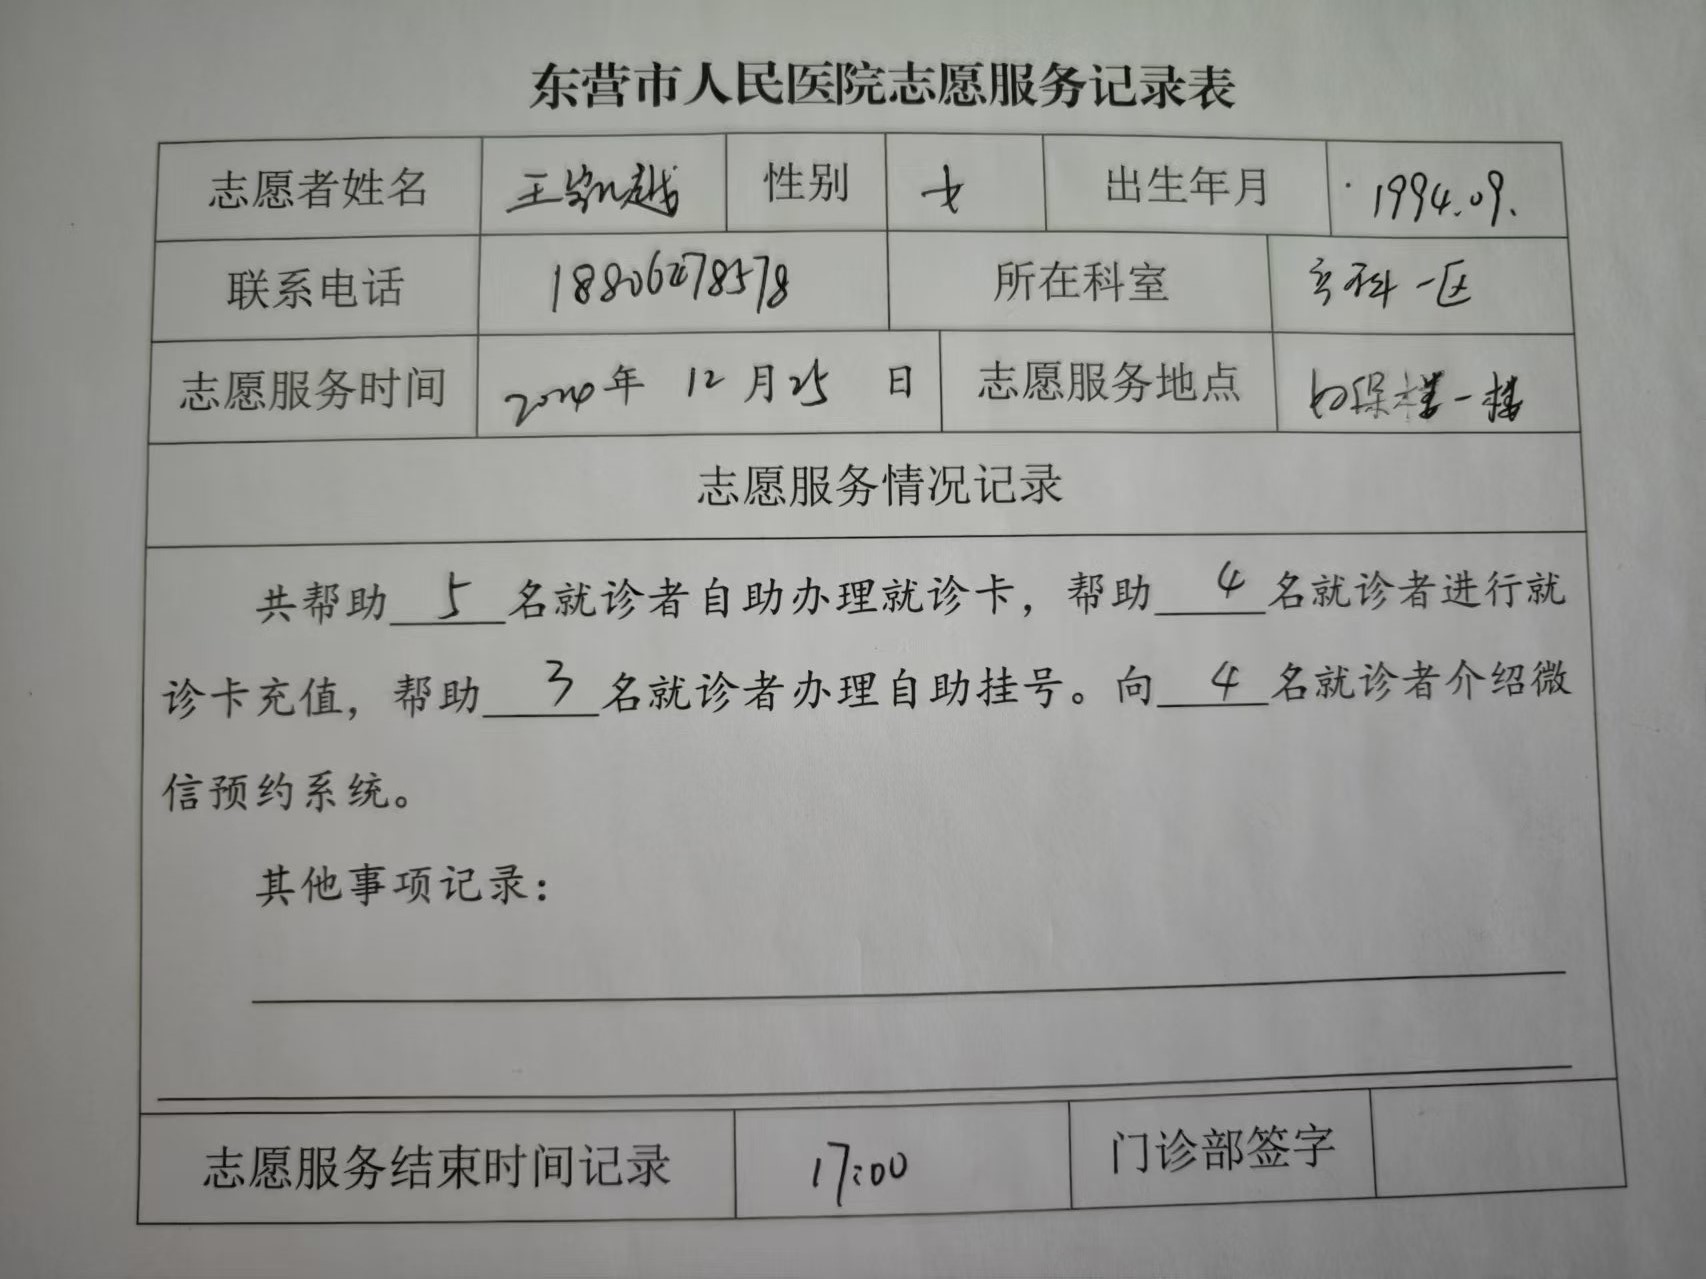 东营市人民医院志愿服务记录表
志愿者姓名 王凯越 性别 女 出生年月 1994.09.
联系电话 所在科室 产科一区
志愿服务时间 2024年 12月25 日 志愿服务地点 妇保楼一楼
志愿服务情况记录
共帮助 5 名就诊者自助办理就诊卡，帮助 4 名就诊者进行就
诊卡充值，帮助 3 名就诊者办理自助挂号。向 4 名就诊者介绍微
信预约系统。
其他事项记录：
志愿服务结束时间记录 17:00 门诊部签字